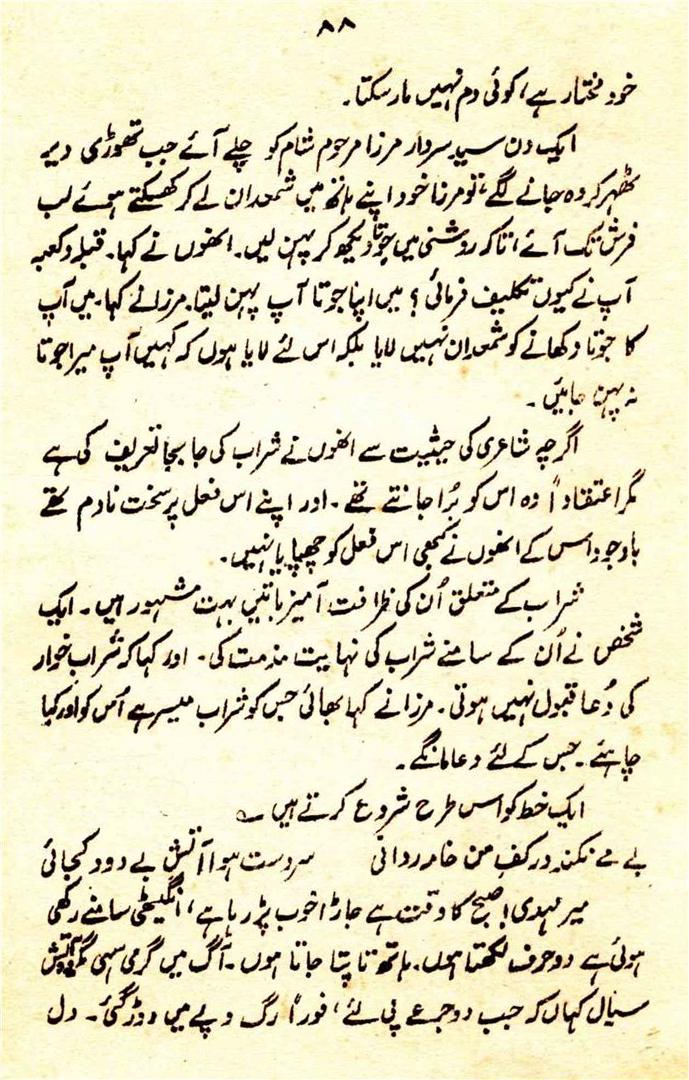 ۸۸
خود مختار ہے، کوئی دم نہیں مار سکتا۔
ایک دن سید سردار مرزا مرحوم شام کو چلے آئے جب تھوڑی دیر
ٹھہر کر وہ جانے لگے، تو مرزا خود اپنے ہاتھ میں شمعدان لے کر کھسکتے ہوئے لب
فرش تک آئے، تاکہ روشنی میں جوتا دیکھ کر پہن لیں۔ انھوں نے کہا۔ قبلہ و کعبہ
آپ نے کیوں تکلیف فرمائی؟ میں اپنا جوتا آپ پہن لیتا۔ مرزا نے کہا۔ میں آپ
کا جوتا دکھانے کو شمعدان نہیں لایا بلکہ اس لئے لایا ہوں کہ کہیں آپ میرا جوتا
نہ پہن جائیں۔
اگرچہ شاعری کی حیثیت سے انھوں نے شراب کی جابجا تعریف کی ہے
مگر اعتقاداً وہ اس کو بُرا جانتے تھے۔ اور اپنے اس فعل پر سخت نادم تھے
باوجود اس کے انھوں نے کبھی اس فعل کو چھپایا نہیں۔
شراب کے متعلق اُن کی ظرافت آمیز باتیں بہت مشہور ہیں۔ ایک
شخص نے اُن کے سامنے شراب کی نہایت مذمت کی۔ اور کہا کہ شراب خوار
کی دُعا قبول نہیں ہوتی۔ مرزا نے کہا بھائی جس کو شراب میسر ہے اُس کو اور کیا
چاہئے۔ جس کے لئے دعا مانگے۔
ایک خط کو اس طرح شروع کرتے ہیں ؎
بے مے نکند در کفِ من خامہ روانی سرد ست ہوا آتش بے دود کجائی
میر مہدی! صبح کا وقت ہے جاڑا خوب پڑ رہا ہے، انگیٹھی سامنے رکھی
ہوئی ہے دو حرف لکھتا ہوں۔ ہاتھ تاپتا جاتا ہوں۔ آگ میں گرمی سہی مگر آتش
سیال کہاں کہ جب دو جرعے پی لئے، فوراً رگ و پے میں دوڑ گئی۔ دل